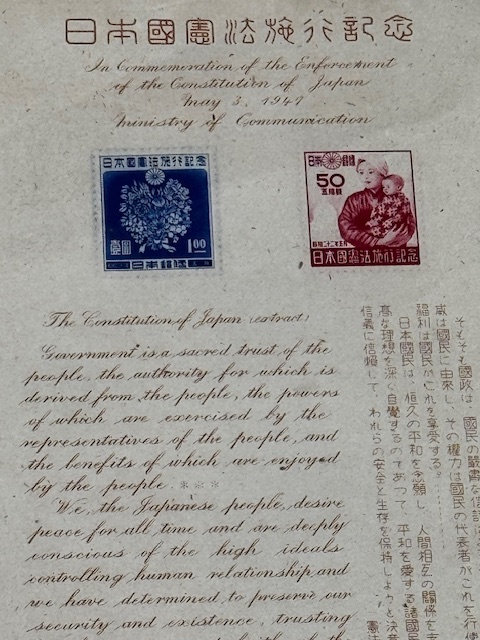 日本國憲法施行記念
In Commemoration of the Enforcement
of the Constitution of Japan
May 3, 1947
Ministry of Communication
日本國憲法施行記念
壹圓
1.00
日本郵便
日本郵便
50
五拾錢
昭和二十二年五月
日本國憲法施行記念
The Constitution of Japan (extract)
Government is a sacred trust of the
people, the authority for which is
derived from the people, the powers
of which are exercised by the
representatives of the people, and
the benefits of which are enjoyed
by the people ***
We, the Japanese people, desire
peace for all time and are deeply
conscious of the high ideals
controlling human relationship and
we have determined to preserve our
security and existence, trusting
そもそも國政は、國民の嚴肅な信託
威は國民に由來し、その權力は國民の代表者がこれを行使
福利は國民がこれを享受する。
日本國民は、恒久の平和を念願し、人間相互の關係を
高な理想を深く自覺するのであつて、平和を愛する諸國民
信義に信頼して、われらの安全と生存を保持しようと決
憲法